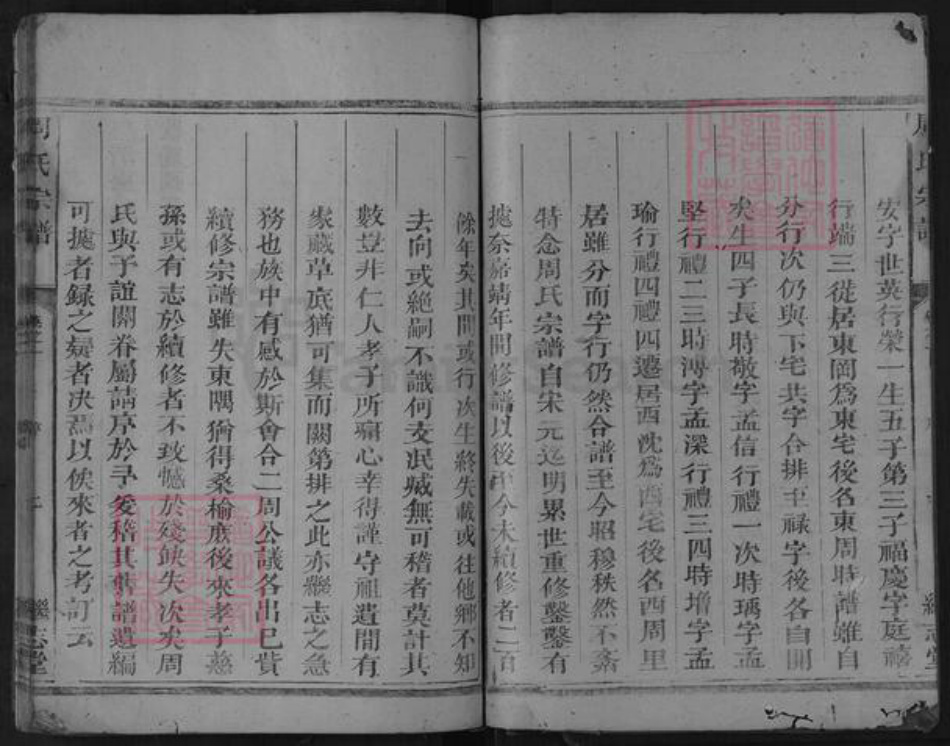 周氏宗譜
安字世英行榮一生五子第三子福慶字庭禧
行端三從居東岡爲東宅後名東周時譜雖自
分行次仍與下宅共字合排至祿字後各自開
矣生四子長時敬字孟信行禮一次時瑀字孟
堅行禮二三時溥字孟深行禮三四時增字孟
瑜行禮四禮四遷居西沈爲西宅後名西周里
居雖分而字行仍然合譜至今昭穆秩然不紊
特念周氏宗譜自宋元迄明累世重修鑿鑿有
據奈嘉靖年間修譜以後至今未續修者二百
繼志堂
餘年矣其間或行次生終失載或往他鄉不知
去向或絶嗣不識何支泯臧無可稽者莫計其
數豈非仁人孝子所痛心幸得謹守祖遺間有
家藏草底猶可集而關第排之此亦繼志之急
務也族中有感於斯會合二周公議各出已貲
續修宗譜雖失東隅猶得桑榆庶後來孝子慈
孫或有志於續修者不致憾於殘缺失次矣周
氏與予誼關眷屬請序於予爰稽其舊譜遺編
可據者録之疑者决焉以俟來者之考訂云
周氏宗譜
繼志堂